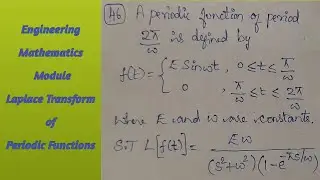 Engineering
Mathematics
Module
Laplace Transform
of
Periodic Functions
46 A periodic function of period
2π/ω is defined by
f(t) = { E Sinωt , 0 ≤ t ≤ π/ω
0 , π/ω ≤ t ≤ 2π/ω
where E and ω are constants.
S.T L[f(t)] = Eω / (s²+ω²)(1-e^(-πs/ω))